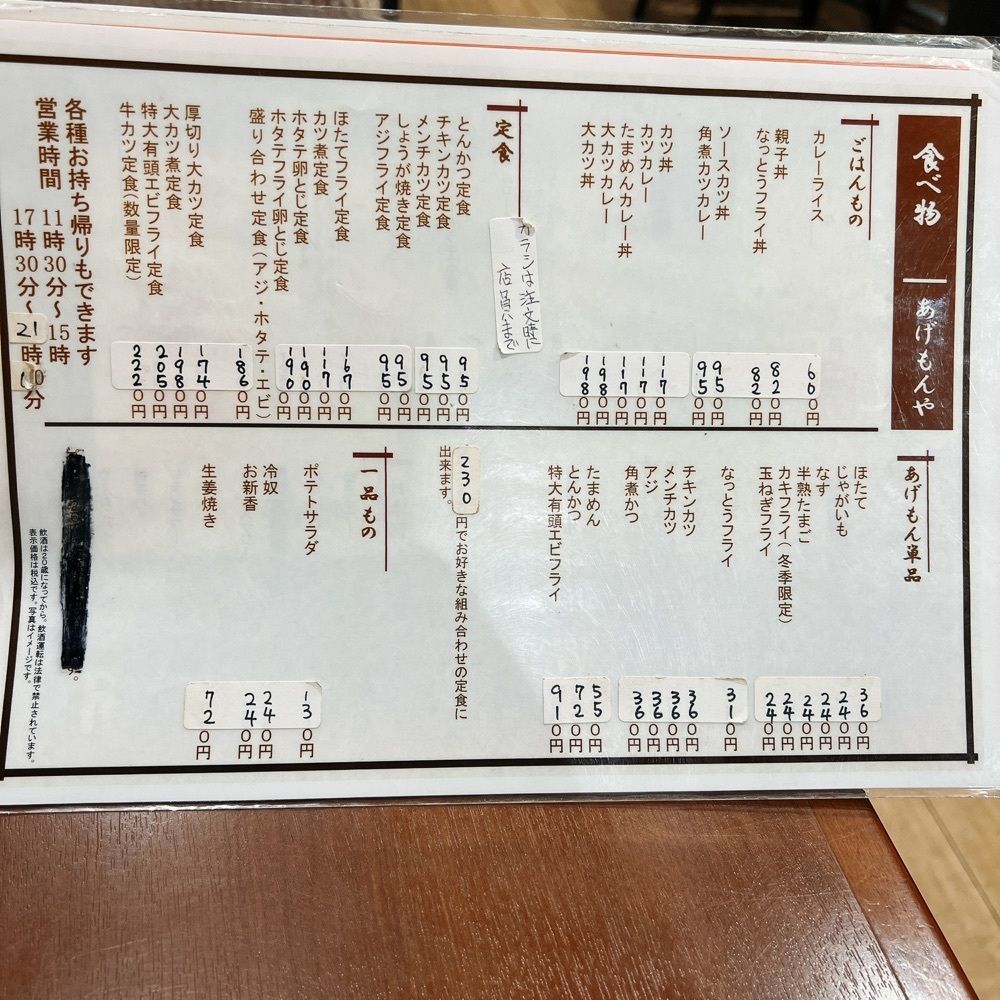 食べ物
あげもんや
ごはんもの
カレーライス 600円
親子丼 820円
なっとうフライ丼 820円
ソースカツ丼 950円
角煮カツカレー 950円
カツ丼 1170円
カツカレー 1170円
たまめんカレー丼 1170円
大カツカレー 1980円
大カツ丼 1980円
カラシは注文時に
店員まで
定食
とんかつ定食 950円
チキンカツ定食 950円
メンチカツ定食 950円
しょうが焼き定食 950円
アジフライ定食 950円
ほたてフライ定食 1670円
カツ煮定食 1170円
ホタテ卵とじ定食 1900円
ホタテフライ卵とし定食 1900円
盛り合わせ定食(アジ・ホタテ・エビ) 1860円
厚切り大カツ定食 1740円
大カツ煮定食 1980円
特大有頭エビフライ定食 2050円
牛カツ定食(数量限定) 2220円
各種お持ち帰りもできます
営業時間 11時30分〜15時
17時30分〜21時 分
あげもん単品
ほたて 360円
じゃがいも 240円
なす 240円
半熟たまご 240円
カキフライ(冬季限定) 240円
玉ねぎフライ 240円
なっとうフライ 310円
チキンカツ 360円
メンチカツ 360円
アジ 360円
角煮かつ 360円
たまめん 550円
とんかつ 720円
特大有頭エビフライ 910円
230円でお好きな組み合わせの定食に
出来ます。
一品もの
ポテトサラダ 130円
冷奴 240円
お新香 240円
生姜焼き 720円
す。
飲酒は20歳になってから。飲酒運転は法律で禁止されています。
表示価格は税込です。写真はイメージです。